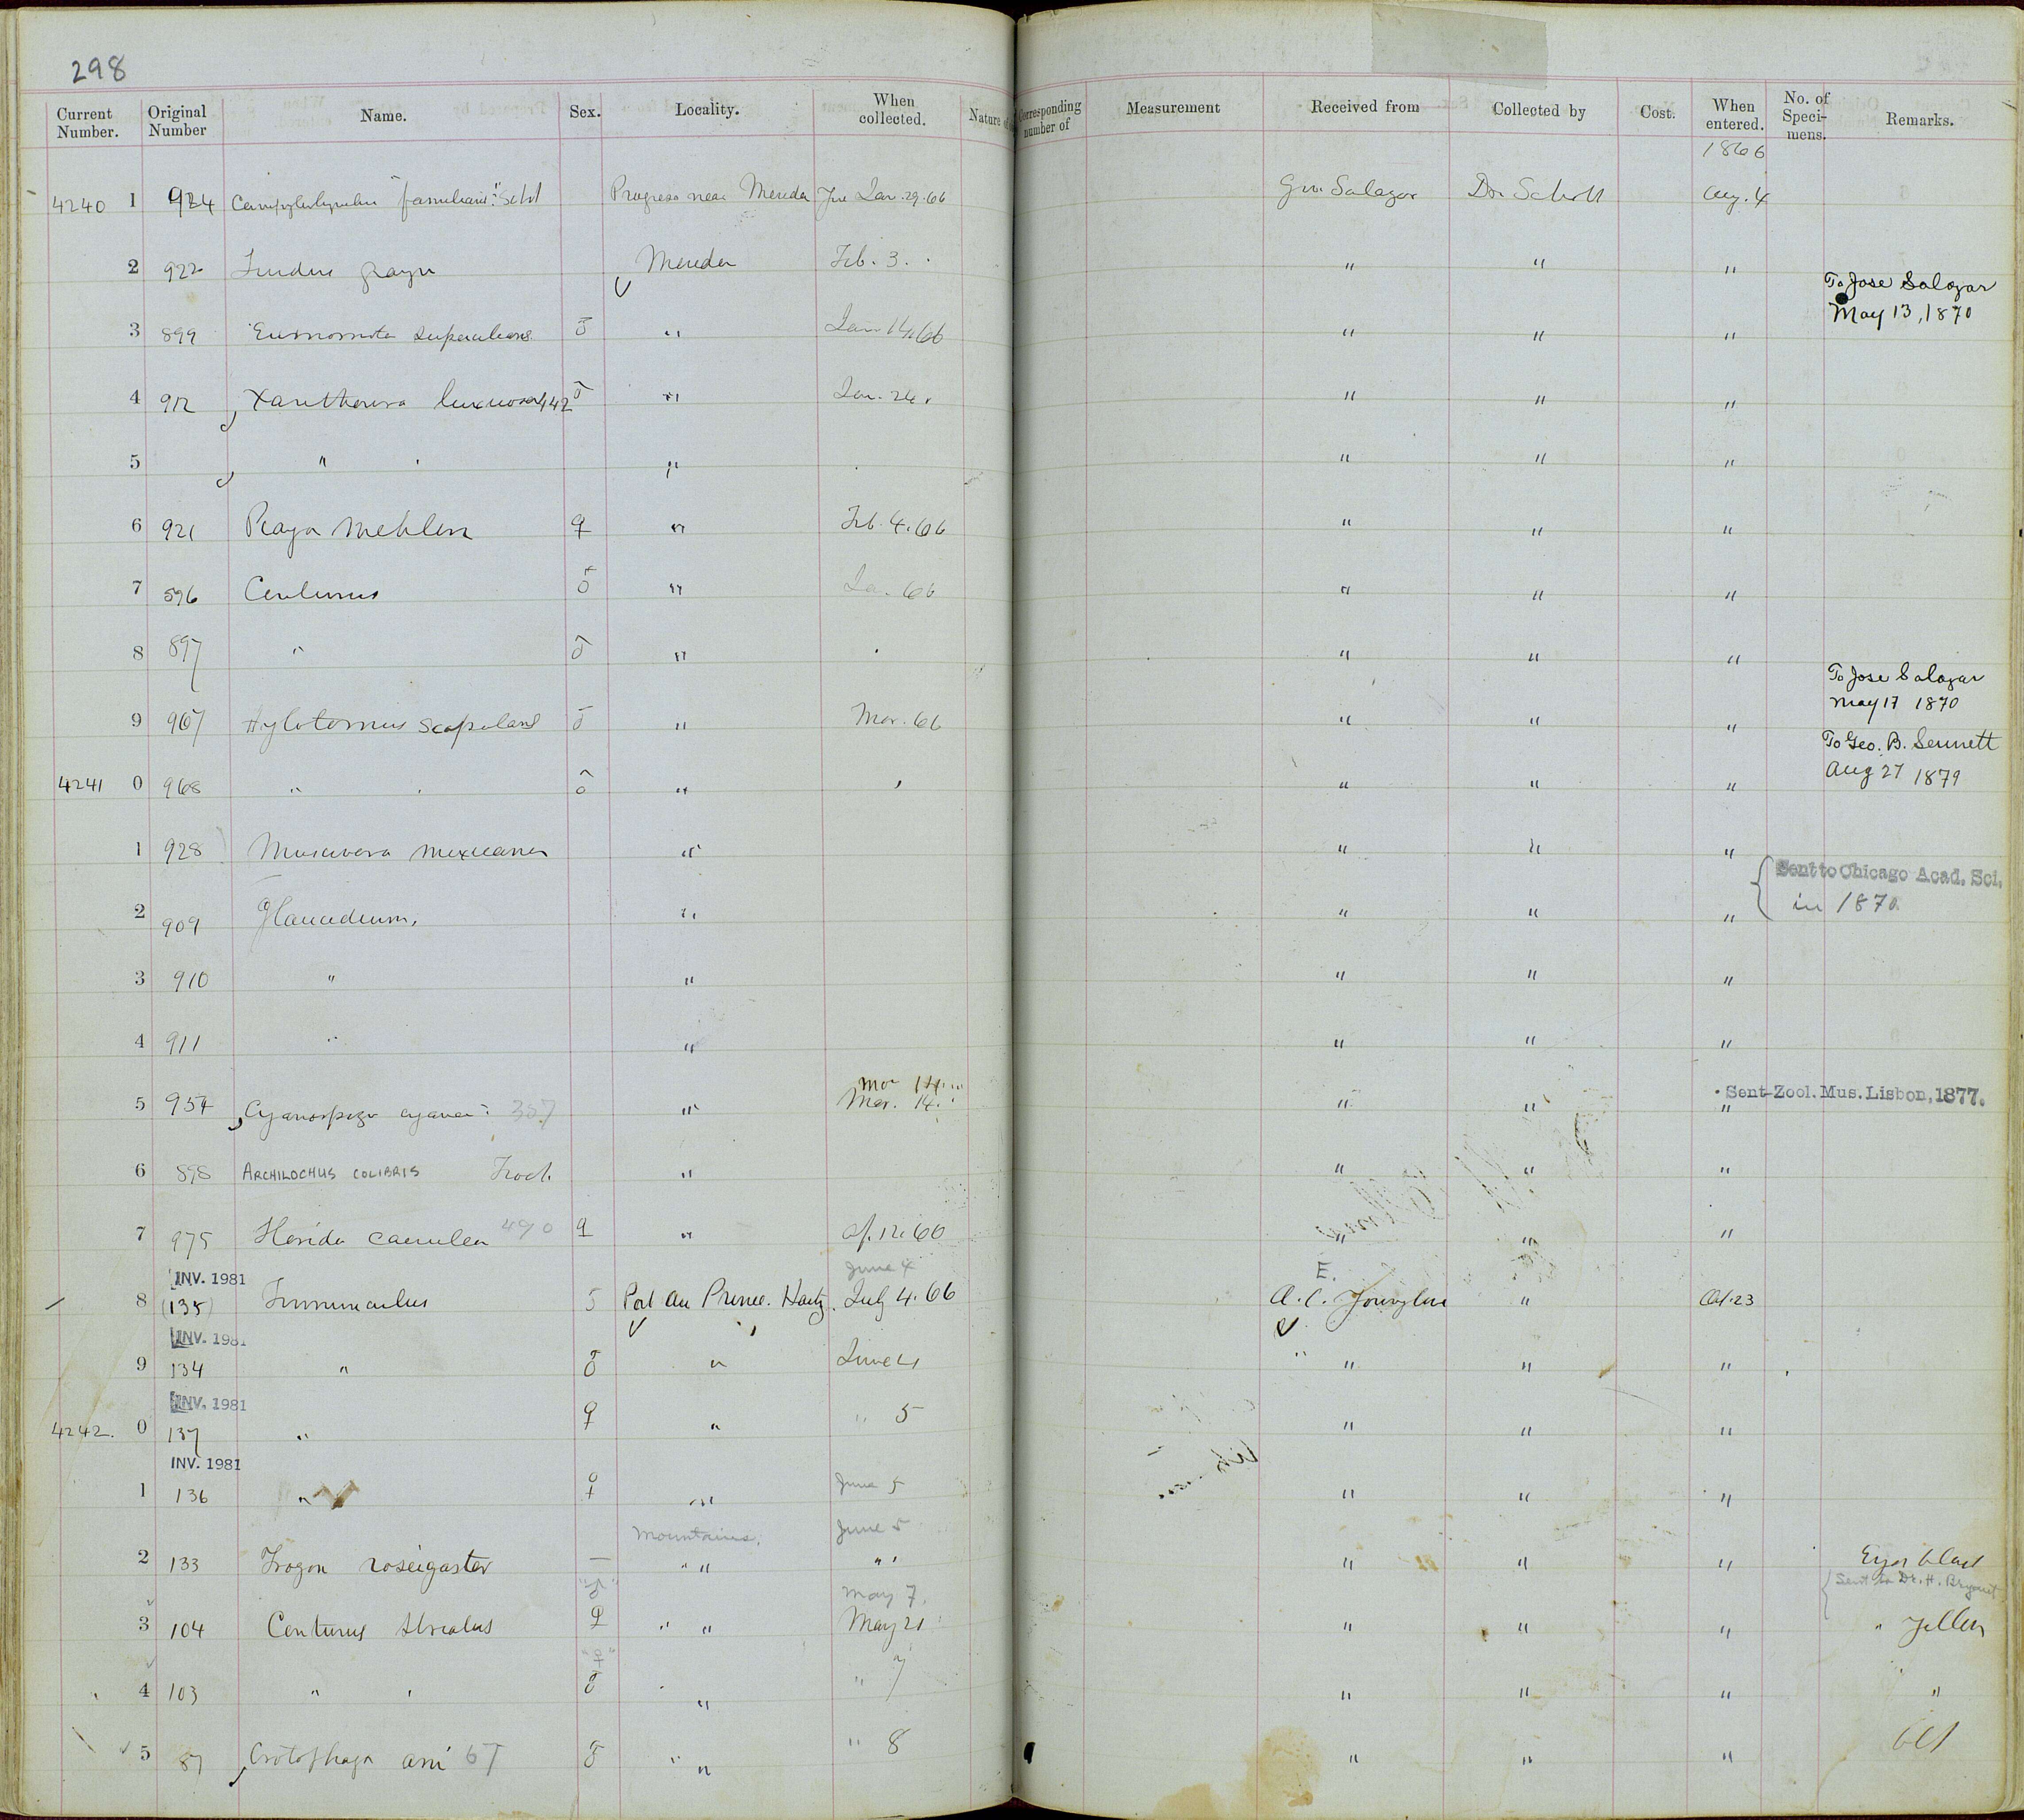 298
Current Number. Original Number Name. Sex. Locality. When collected. Nature of Corresponding number of Measurement Received from Collected by Cost. When entered. No. of Speci-mens. Remarks.
1866
4240 1 924 Progreso near Merida Jan. 29. 66 Gov. Salazar Dr. Schott Aug. 4
2 922 grayi Merida Feb. 3. " " "
To Jose Salazar
May 13, 1870
3 899 Eumomota superciliaris ♂ " Jan 14. 66 " " "
4 912 Xanthoura luxuosa 442 ♂ " Jan. 24. " " "
5 " " " " "
6 921 Piaya Mehleri ♀ " Feb. 4. 66 " " "
7 896 Centurus ♂ " Jan. 66 " " "
8 897 " ♂ " " " "
To Jose Salazar
May 17 1870
9 967 Hylotomus scapularis ♂ " Mar. 66 " " "
To Geo. B. Sennett
Aug 27 1879
4241 0 968 " ♂ " " " "
1 928 Muscivora mexicana " " " "
Sent to Chicago Acad. Sci.
in 1870.
2 909 Glaucidium. " " " "
3 910 " " " " "
4 911 " " " " "
Mar 14
5 954 Cyanospiza cyanea 387 " Mar. 14. " " "
Sent Zool. Mus. Lisbon, 1877.
6 898 ARCHILOCHUS COLIBRIS Troch. " " " "
7 975 Florida caerulea 490 ♀ " Ap. 12. 66 " " "
INV. 1981 June 4 E.
8 (135) Tinnunculus Port au Prince. Hayti. July 4. 66 A. C. Younglove " Oct. 23
INV. 1981
9 134 " ♂ " June 4 " " "
INV. 1981
4242. 0 137 " ♀ " " 5 " " "
INV. 1981
1 136 " ♀ " June 5 " " "
Mountains. June 5
2 133 Trogon roseigaster — " " " " " " Eyes
Sent to Dr. H. Bryant
"♂" May 7.
3 104 Centurus striatus ♀ " " May 21 " " " "
"♀"
4 103 " " ♂ " " 7 " " " "
5 87 Crotophaga ani 67 ♂ " " " 8 " " "